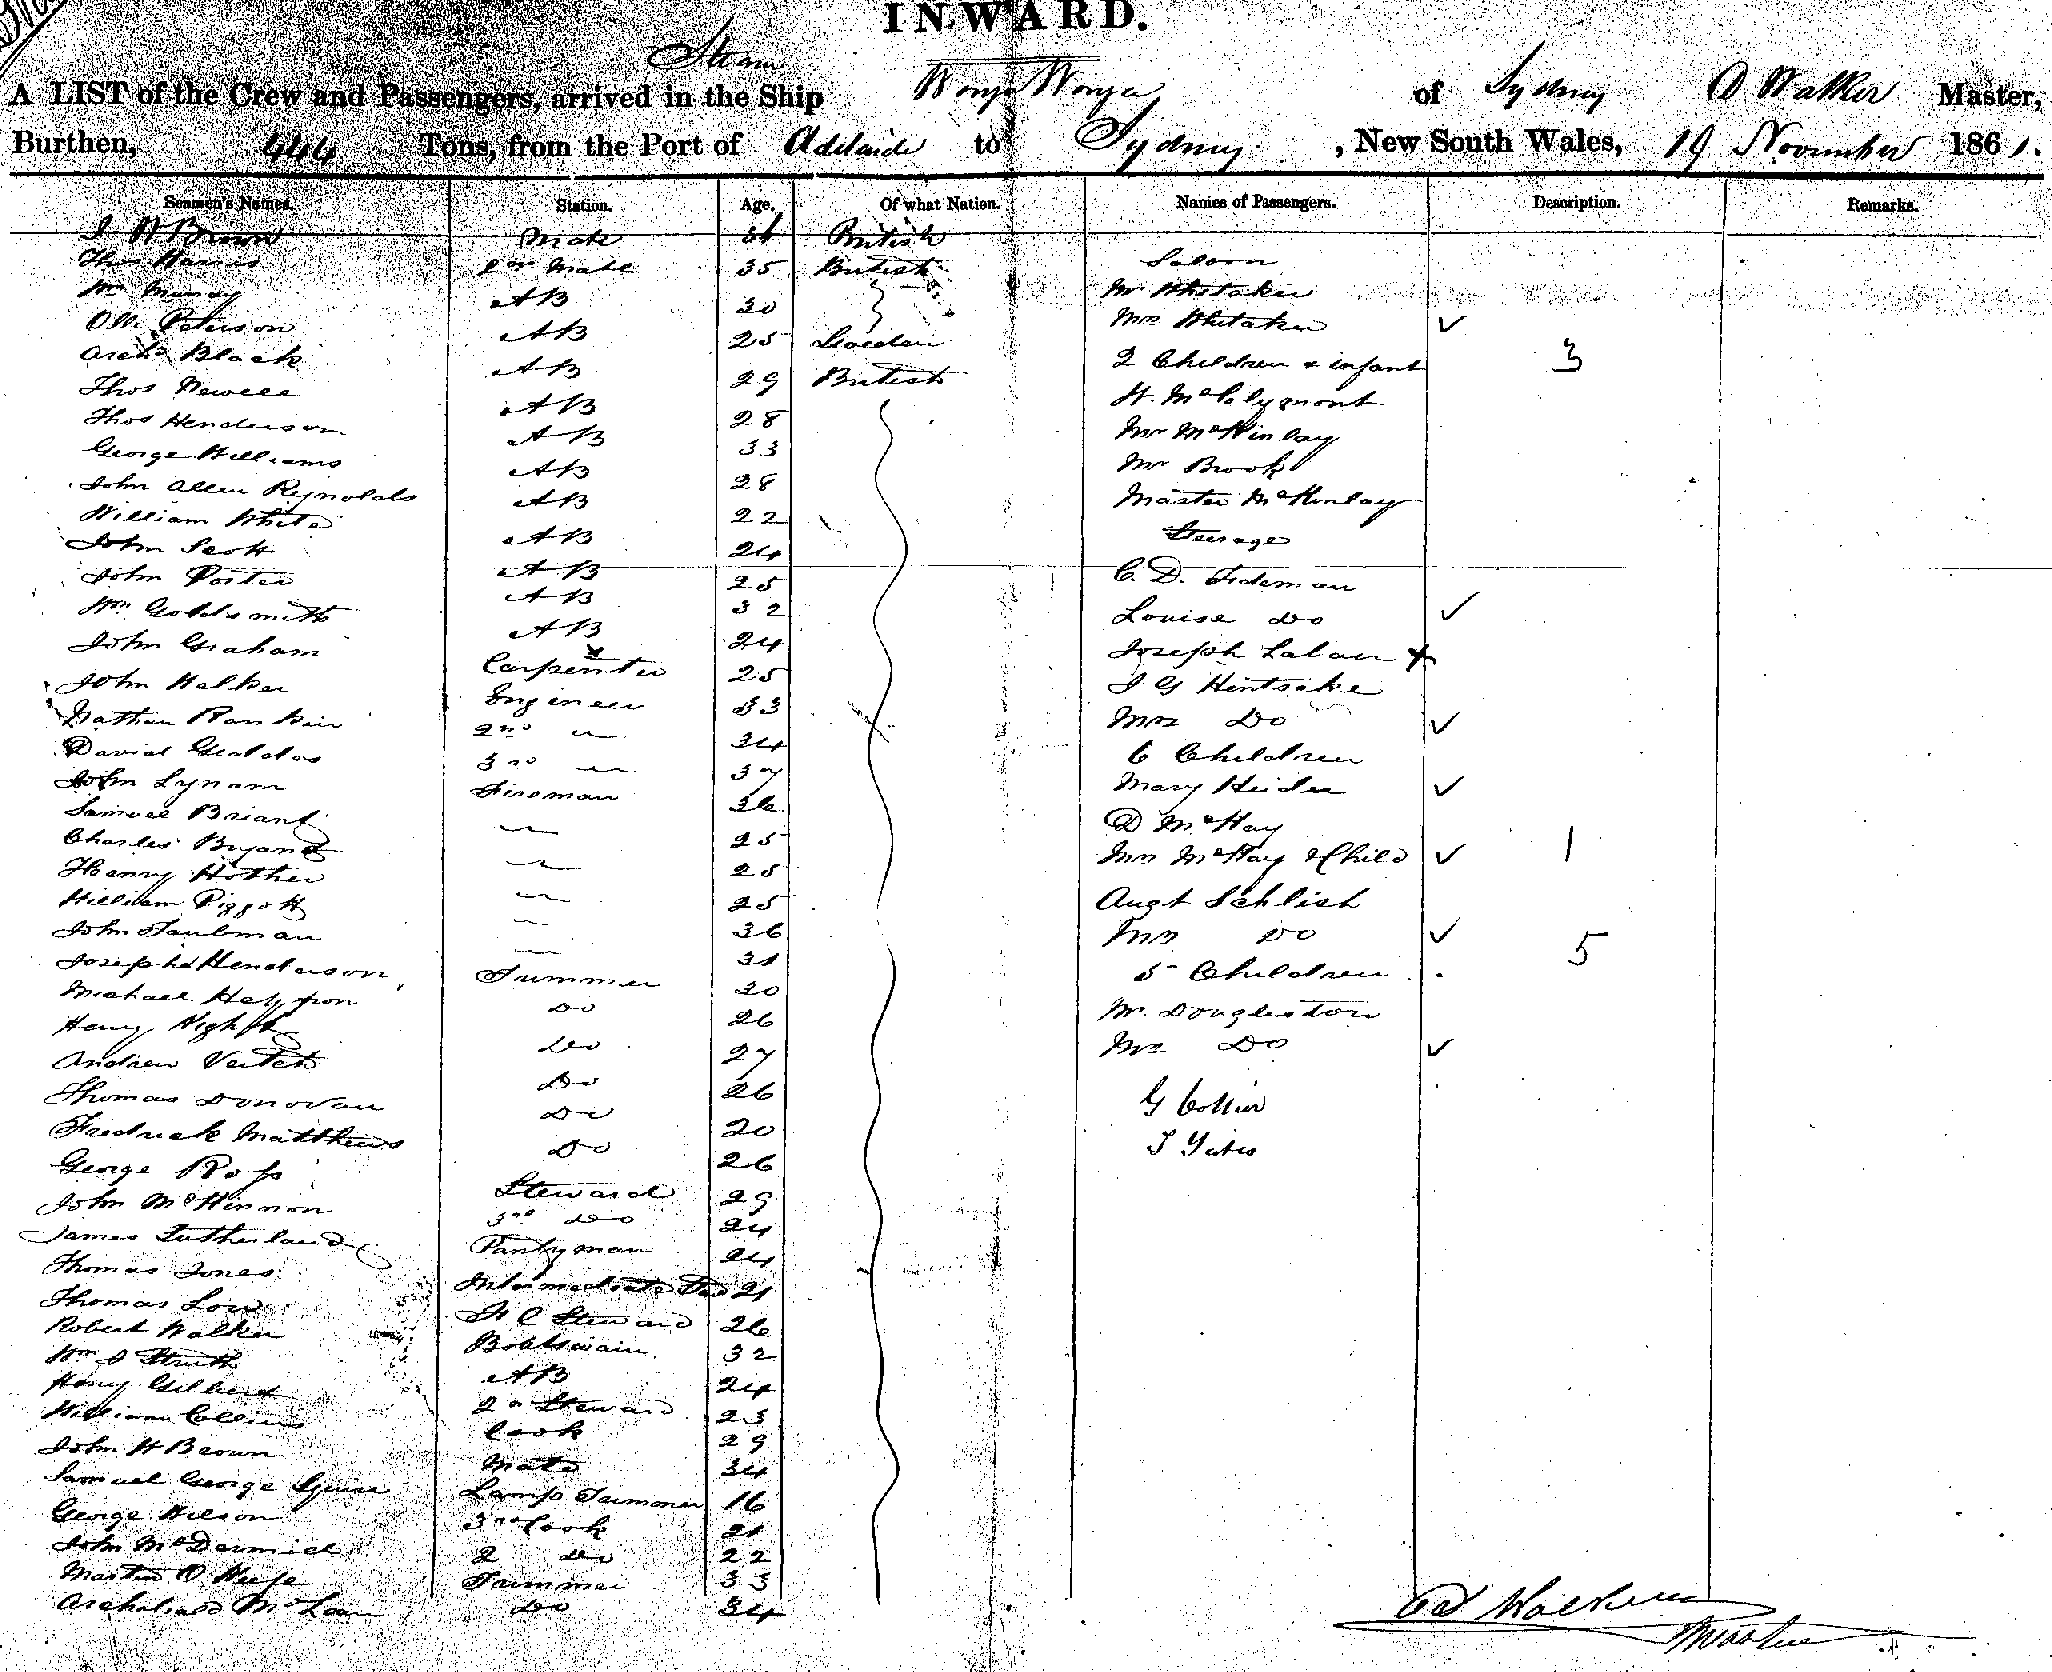 INWARD.
Steam
A LIST of the Crew and Passengers, arrived in the Ship Wonga Wonga of Sydney D Walker Master,
Burthen, 444 Tons, from the Port of Adelaide to Sydney, New South Wales, 19 November 1861.
Seamen's Names. Station. Age. Of what Nation. Names of Passengers. Description. Remarks.
J H Brown Mate 34 British
Thos Harris 2nd Mate 35 British Saloon
Wm AB 30 Mr Whitaker
Olle Peterson AB 25 Sweden Mrs Whitaker ✓
Archd Black AB 29 British 2 Children & infant 3
Thos Newell AB 28 H. McClymont
Thos Henderson AB 33 Mr McKinlay
George Williams AB 28 Mr Brook
John Allen Reynolds AB 22 Master McKinlay
William White AB 24 Steerage
John Scott AB 25 C. D. Tideman
John Porter AB 32 Louise Do ✓
Wm Goldsmith AB 24 Joseph Lalaer x
John Graham Carpenter 25 J G Hentsake
John Walker Engineer 33 Mrs Do ✓
Nathan Rankin 2nd " 34 6 Children
David Geddes 3rd " 37 Mary Heider ✓
John Lynam Fireman 36 D McKay
Samuel Briant " 25 Mrs McKay & Child ✓ 1
Charles Bryant " 25 Augt Schlish
Henry Hother " 25 Mrs Do ✓
William Piggott " 36 5 Children 5
John Taubman " 31 Mr Dougleston
Joseph Henderson Trimmer 20 Mrs Do ✓
Michael Do 26 G Collier
Henry Night Do 27 J Yates
Andrew Veitch Do 26
Thomas Donovan Do 20
Fredrick Matthews Do 26
George Ross Steward 29
John McKinnon 3rd Do 24
James Sutherland Pantryman 24
Thomas Jones Intermediate Std 21
Thomas Low F C Steward 26
Robert Walker Boatswain 32
Wm J Struth AB 24
Henry Gilbert 2nd Steward 23
William Collins Cook 29
John H Brown Mate 34
Samuel George Lamp Trimmer 16
George Wilson 3rd Cook 21
John McDermid 2 Do 22
Martin O Keefe Trimmer 33
Archibald McLean Do 34
Walker
Master